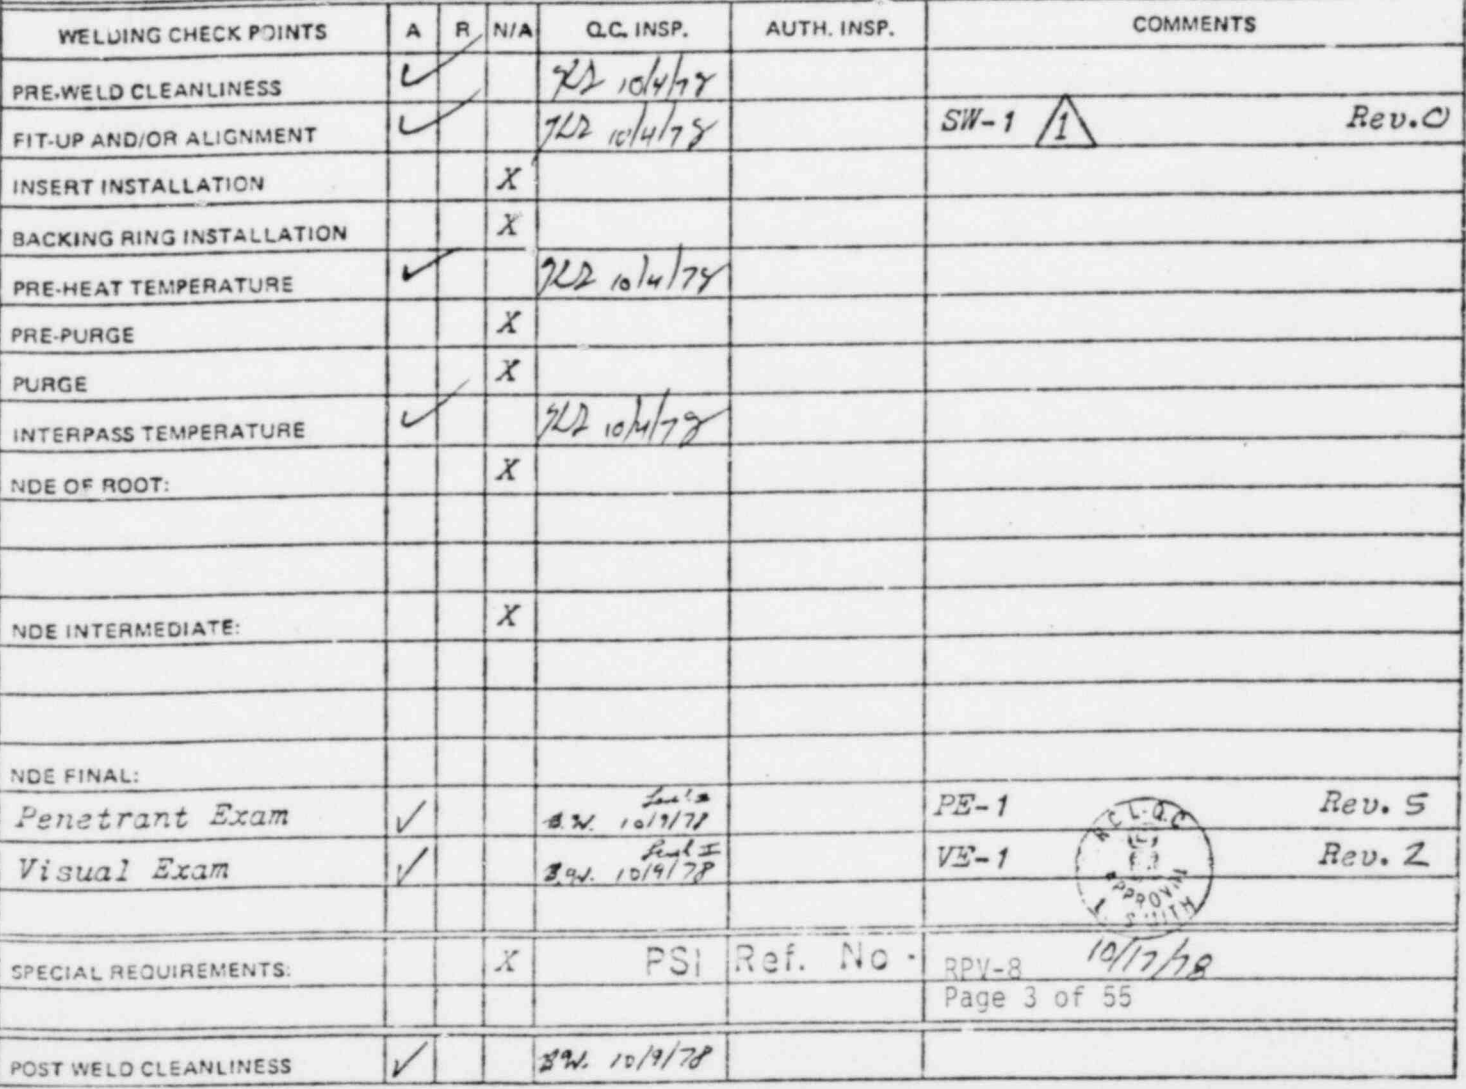 WELDING CHECK POINTS A R N/A Q.C. INSP. AUTH. INSP. COMMENTS
PRE-WELD CLEANLINESS ✓ 10/4/78
FIT-UP AND/OR ALIGNMENT ✓ 10/4/78 SW-1 1 Rev.0
INSERT INSTALLATION X
BACKING RING INSTALLATION X
PRE-HEAT TEMPERATURE ✓ 10/4/78
PRE-PURGE X
PURGE X
INTERPASS TEMPERATURE ✓ 10/4/78
NDE OF ROOT: X
NDE INTERMEDIATE: X
NDE FINAL:
Level
Penetrant Exam ✓ B.W. 10/9/78 PE-1 Rev. 5
Level I
Visual Exam ✓ B.W. 10/9/78 VE-1 Rev. 2
Q.C.
APPROVAL
SMITH
SPECIAL REQUIREMENTS: X PSI Ref. No. RPV-8 10/17/78
Page 3 of 55
POST WELD CLEANLINESS ✓ B.W. 10/9/78